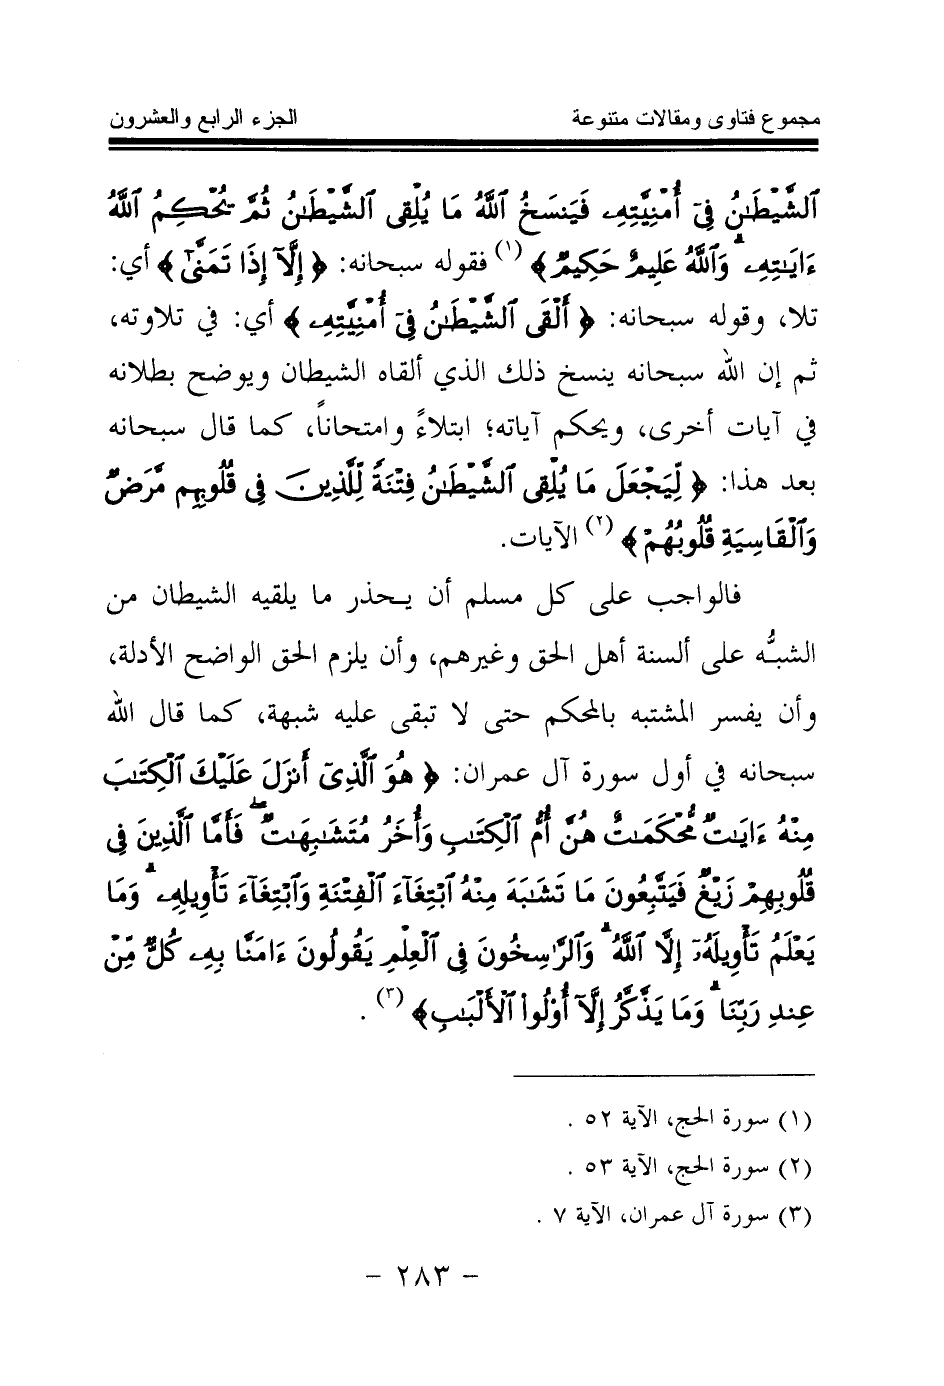 مجموع فتاوى ومقالات متنوعة الجزء الرابع والعشرون
ٱلشَّيْطَٰنُ فِىٓ أُمْنِيَّتِهِۦ فَيَنسَخُ ٱللَّهُ مَا يُلْقِى ٱلشَّيْطَٰنُ ثُمَّ يُحْكِمُ ٱللَّهُ
ءَايَٰتِهِۦ ۗ وَٱللَّهُ عَلِيمٌ حَكِيمٌ﴾ (١) فقوله سبحانه: ﴿ إِلَّآ إِذَا تَمَنَّىٰٓ ﴾ أي:
تلا، وقوله سبحانه: ﴿ أَلْقَى ٱلشَّيْطَٰنُ فِىٓ أُمْنِيَّتِهِۦ ﴾ أي: في تلاوته،
ثم إن الله سبحانه ينسخ ذلك الذي ألقاه الشيطان ويوضح بطلانه
في آيات أخرى، ويحكم آياته؛ ابتلاءً وامتحاناً، كما قال سبحانه
بعد هذا: ﴿ لِّيَجْعَلَ مَا يُلْقِى ٱلشَّيْطَٰنُ فِتْنَةً لِّلَّذِينَ فِى قُلُوبِهِم مَّرَضٌ
وَٱلْقَاسِيَةِ قُلُوبُهُمْ ﴾ (٢) الآيات.
فالواجب على كل مسلم أن يحذر ما يلقيه الشيطان من
الشبُّه على ألسنة أهل الحق وغيرهم، وأن يلزم الحق الواضح الأدلة،
وأن يفسر المشتبه بالمحكم حتى لا تبقى عليه شبهة، كما قال الله
سبحانه في أول سورة آل عمران: ﴿ هُوَ ٱلَّذِىٓ أَنزَلَ عَلَيْكَ ٱلْكِتَٰبَ
مِنْهُ ءَايَٰتٌ مُّحْكَمَٰتٌ هُنَّ أُمُّ ٱلْكِتَٰبِ وَأُخَرُ مُتَشَٰبِهَٰتٌ ۖ فَأَمَّا ٱلَّذِينَ فِى
قُلُوبِهِمْ زَيْغٌ فَيَتَّبِعُونَ مَا تَشَٰبَهَ مِنْهُ ٱبْتِغَآءَ ٱلْفِتْنَةِ وَٱبْتِغَآءَ تَأْوِيلِهِۦ ۗ وَمَا
يَعْلَمُ تَأْوِيلَهُۥٓ إِلَّا ٱللَّهُ ۗ وَٱلرَّٰسِخُونَ فِى ٱلْعِلْمِ يَقُولُونَ ءَامَنَّا بِهِۦ كُلٌّ مِّنْ
عِندِ رَبِّنَا ۗ وَمَا يَذَّكَّرُ إِلَّآ أُوْلُواْ ٱلْأَلْبَٰبِ﴾ (٣) .
(١) سورة الحج، الآية ٥٢ .
(٢) سورة الحج، الآية ٥٣ .
(٣) سورة آل عمران، الآية ٧ .
- ٢٨٣ -